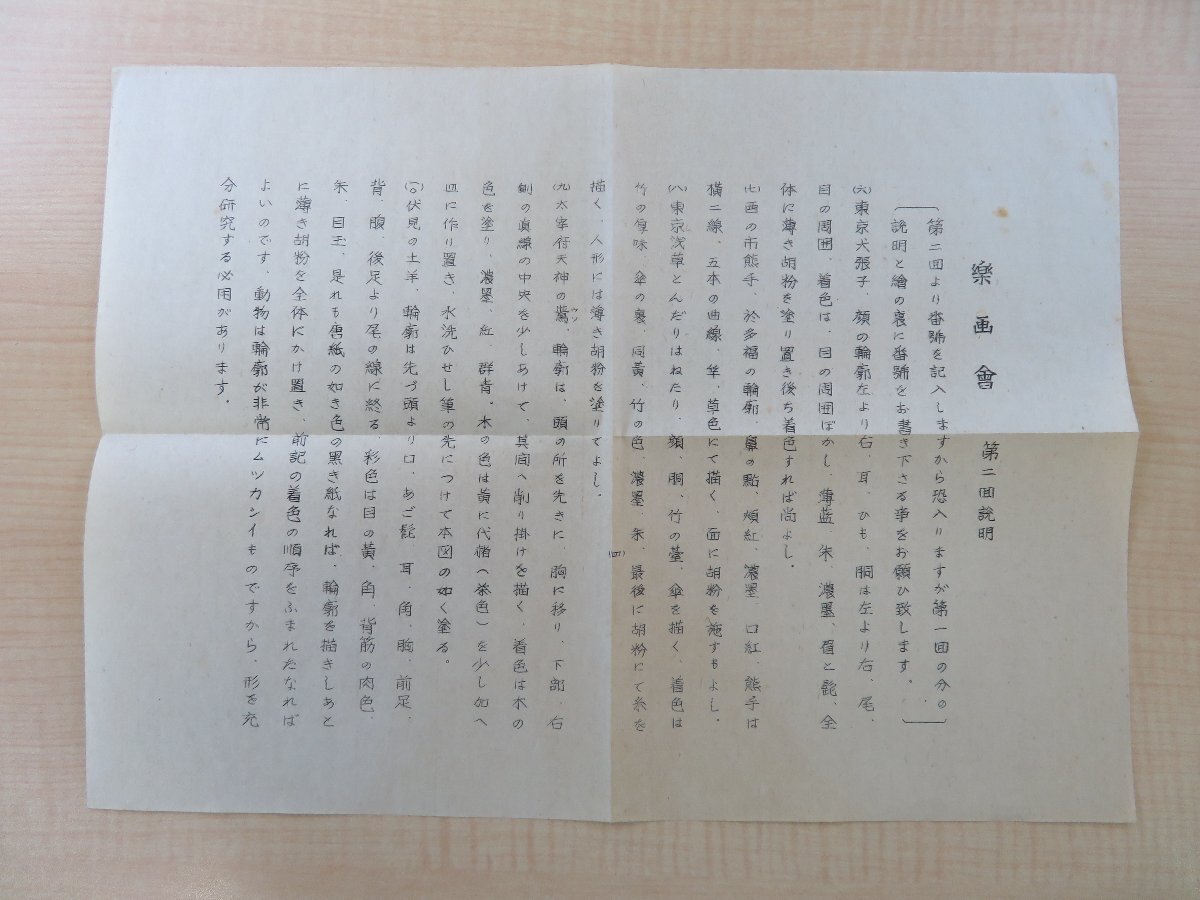 楽画會　第二回説明
第二回より番號を記入しますから恐入りますが第一回の分の
説明と繪の裏に番號をお書き下さる事をお願ひ致します。
(六)東京犬張子、顔の輪廓左より右、耳、ひも、胴は左より右、尾、
目の周囲、着色は、目の周囲ぼかし、薄藍、朱、濃墨、眉と髭、全
体に薄き胡粉を塗り置き後ち着色すれば尚よし。
(七)酉の市熊手、於多福の輪廓、鼻の點、頬紅、濃墨、口紅、熊手は
横二線、五本の曲線、笹、草色にて描く、面に胡粉を施すもよし。
(八)東京浅草とんだりはねたり、顔、胴、竹の臺、傘を描く、着色は
竹の厚味、傘の裏、同黄、竹の色、濃墨、朱、最後に胡粉にて糸を
(四)
描く、人形には薄き胡粉を塗りてよし。
(九)太宰府天神の鷽、輪廓は、頭の所を先きに、胸に移り、下部、右
側の直線の中央を少しあけて、其間へ削り掛けを描く、着色は木の
色を塗り、濃墨、紅、群青。木の色は黄に代赭(茶色)を少し加へ
皿に作り置き、水洗ひせし筆の先につけて本図の如く塗る。
(一〇)伏見の土羊、輪廓は先づ頭より口、あご髭、耳、角、胸、前足、
背、腹、後足より尾の線に終る、彩色は目の黄、角、背筋の肉色、
朱、目玉、是れも唐紙の如き色の黒き紙なれば、輪廓を描きしあと
に薄き胡粉を全体にかけ置き、前記の着色の順序をふまれたなれば
よいのです、動物は輪廓が非常にムツカシイものですから、形を充
分研究する必用があります。